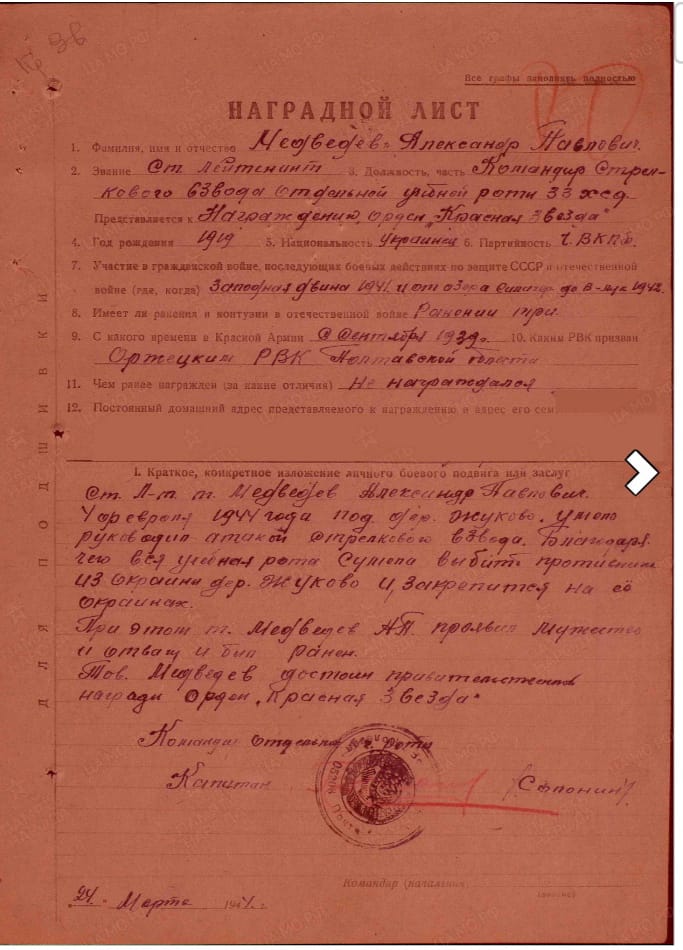 Все графы заполнять полностью
НАГРАДНОЙ ЛИСТ
1. Фамилия, имя и отчество Медведев Александр Павлович.
2. Звание Ст. Лейтенант 3. Должность, часть Командир Стрел-
кового взвода отдельной учебной роти 33 хсд
Представляется к Награждению, орден „Красная Звезда"
4. Год рождения 1919 5. Национальность Украинец 6. Партийность Ч. ВКПб.
7. Участие в гражданской войне, последующих боевых действиях по защите СССР и отечественной
войне (где, когда) Западная двина 1941 и от озера до В-Лук 1942.
8. Имеет ли ранения и контузии в отечественной войне Ранении три
9. С какого времени в Красной Армии С Сентября 1939г. 10. Каким РВК призван
Оржецким РВК Полтавской области
11. Чем ранее награжден (за какие отличия) Не награждался
12. Постоянный домашний адрес представляемого к награждению и адрес его сем
I. Краткое, конкретное изложение личного боевого подвига или заслуг
Ст. Л-т т. Медведев Александр Павлович.
1944 года под дер. Жуково. умело
руководил атакой стрелкового взвода. Благодаря
чего вся учебная рота Сумела выбить противника
из окраини дер. Жуково и, закрепится на её
окраинах.
При этом т. Медведев А.П. проявил мужество
и отвагу и был ранен.
Тов. Медведев достоин правительственной
награди Орден „Красная Звезда"
Командир отдельной роти
Капитан (Сапонин)
Командир (начальник
„24" Марта 1944 г.
ДЛЯ ПОДШИВКИ